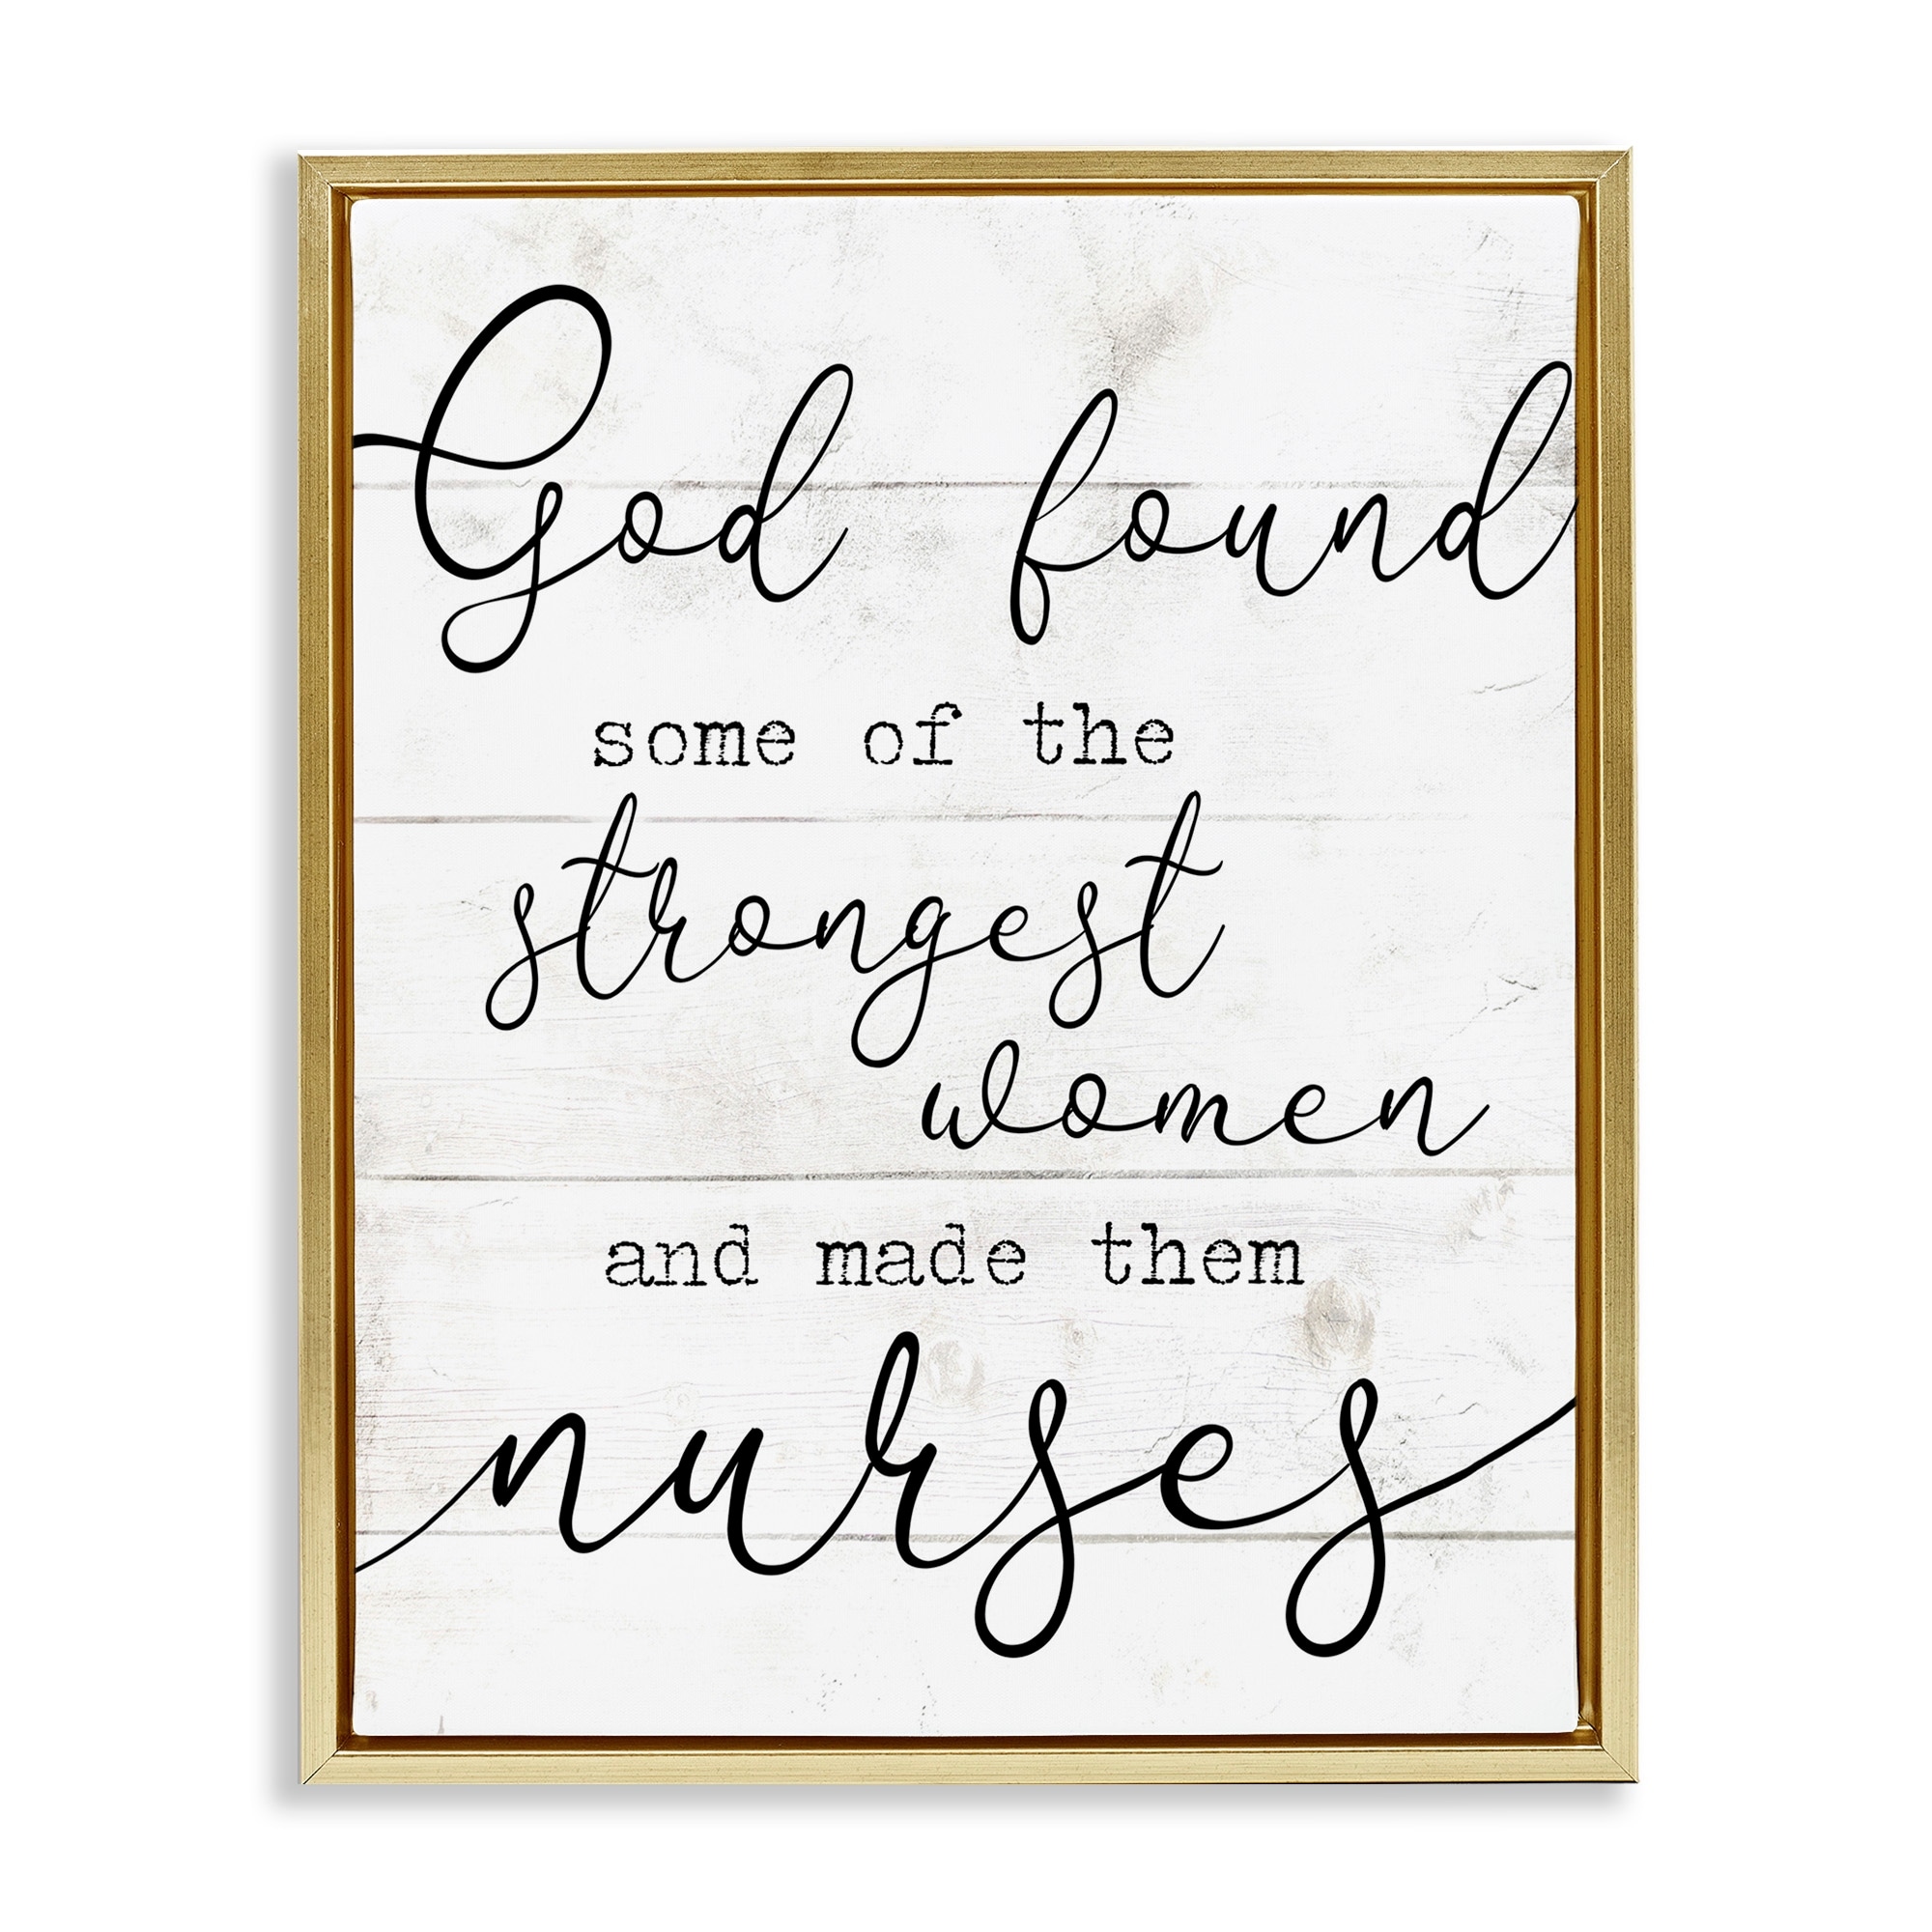 God found
some of the
strongest
women
and made them
nurses